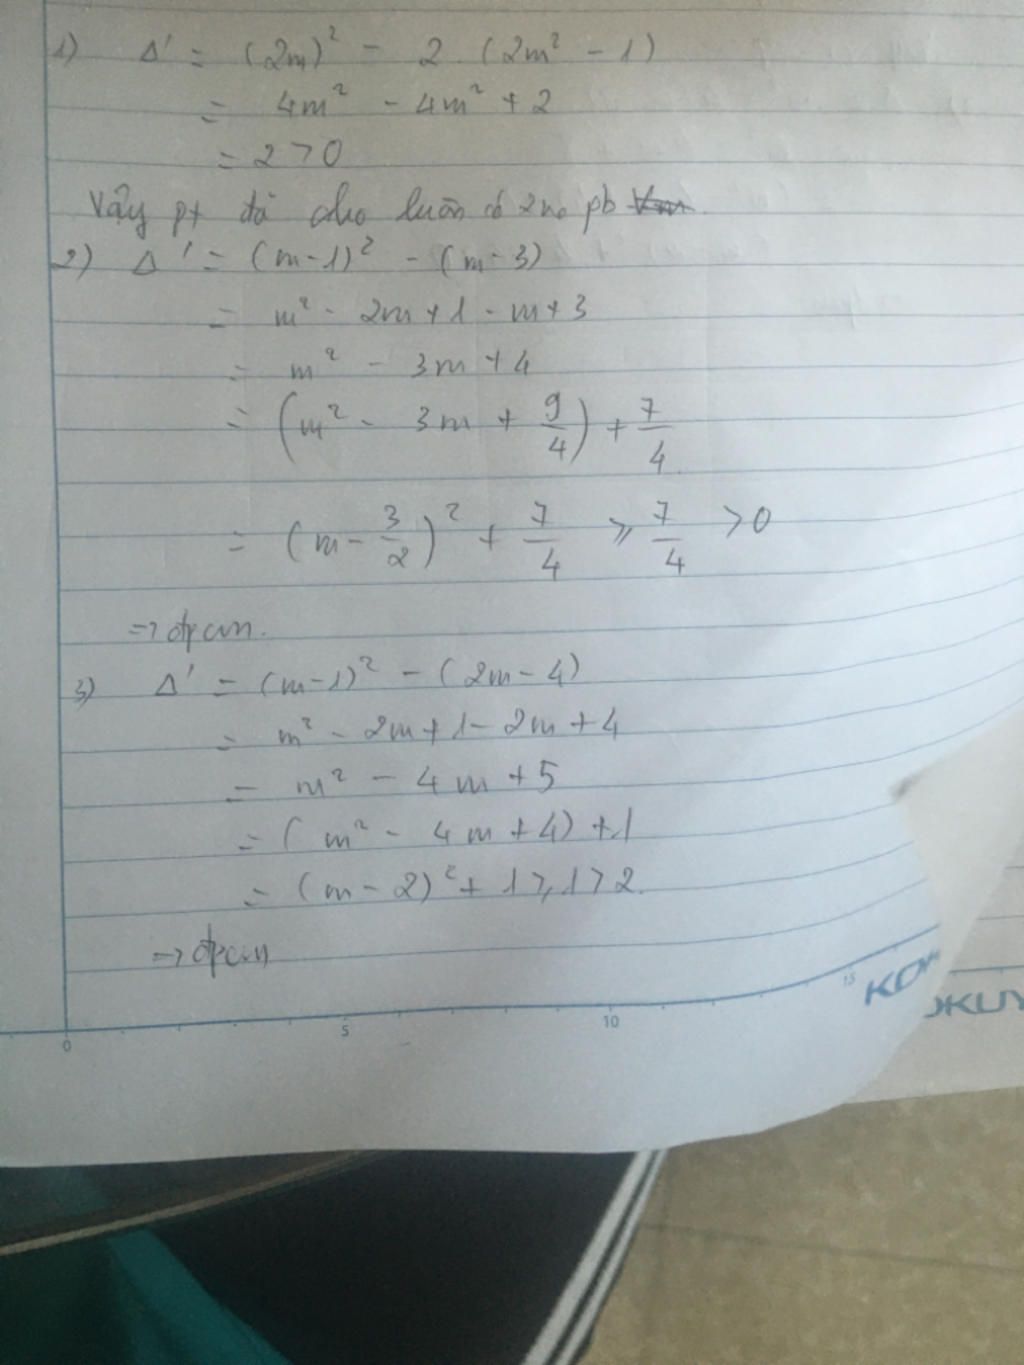 1) Δ' = (2m)² - 2. (2m² - 1)
= 4m² - 4m² + 2
= 2 > 0
Vậy pt đã cho luôn có 2 no pb
2) Δ' = (m-1)² - (m-3)
= m² - 2m + 1 - m + 3
= m² - 3m + 4
= (m² - 3m + 9/4) + 7/4
= (m - 3/2)² + 7/4 ⩾ 7/4 > 0
=> đpcm.
3) Δ' = (m-1)² - (2m - 4)
= m² - 2m + 1 - 2m + 4
= m² - 4m + 5
= (m² - 4m + 4) + 1
= (m - 2)² + 1 ⩾ 1 > 2.
=> đpcm
0 5 10 15
OKUY